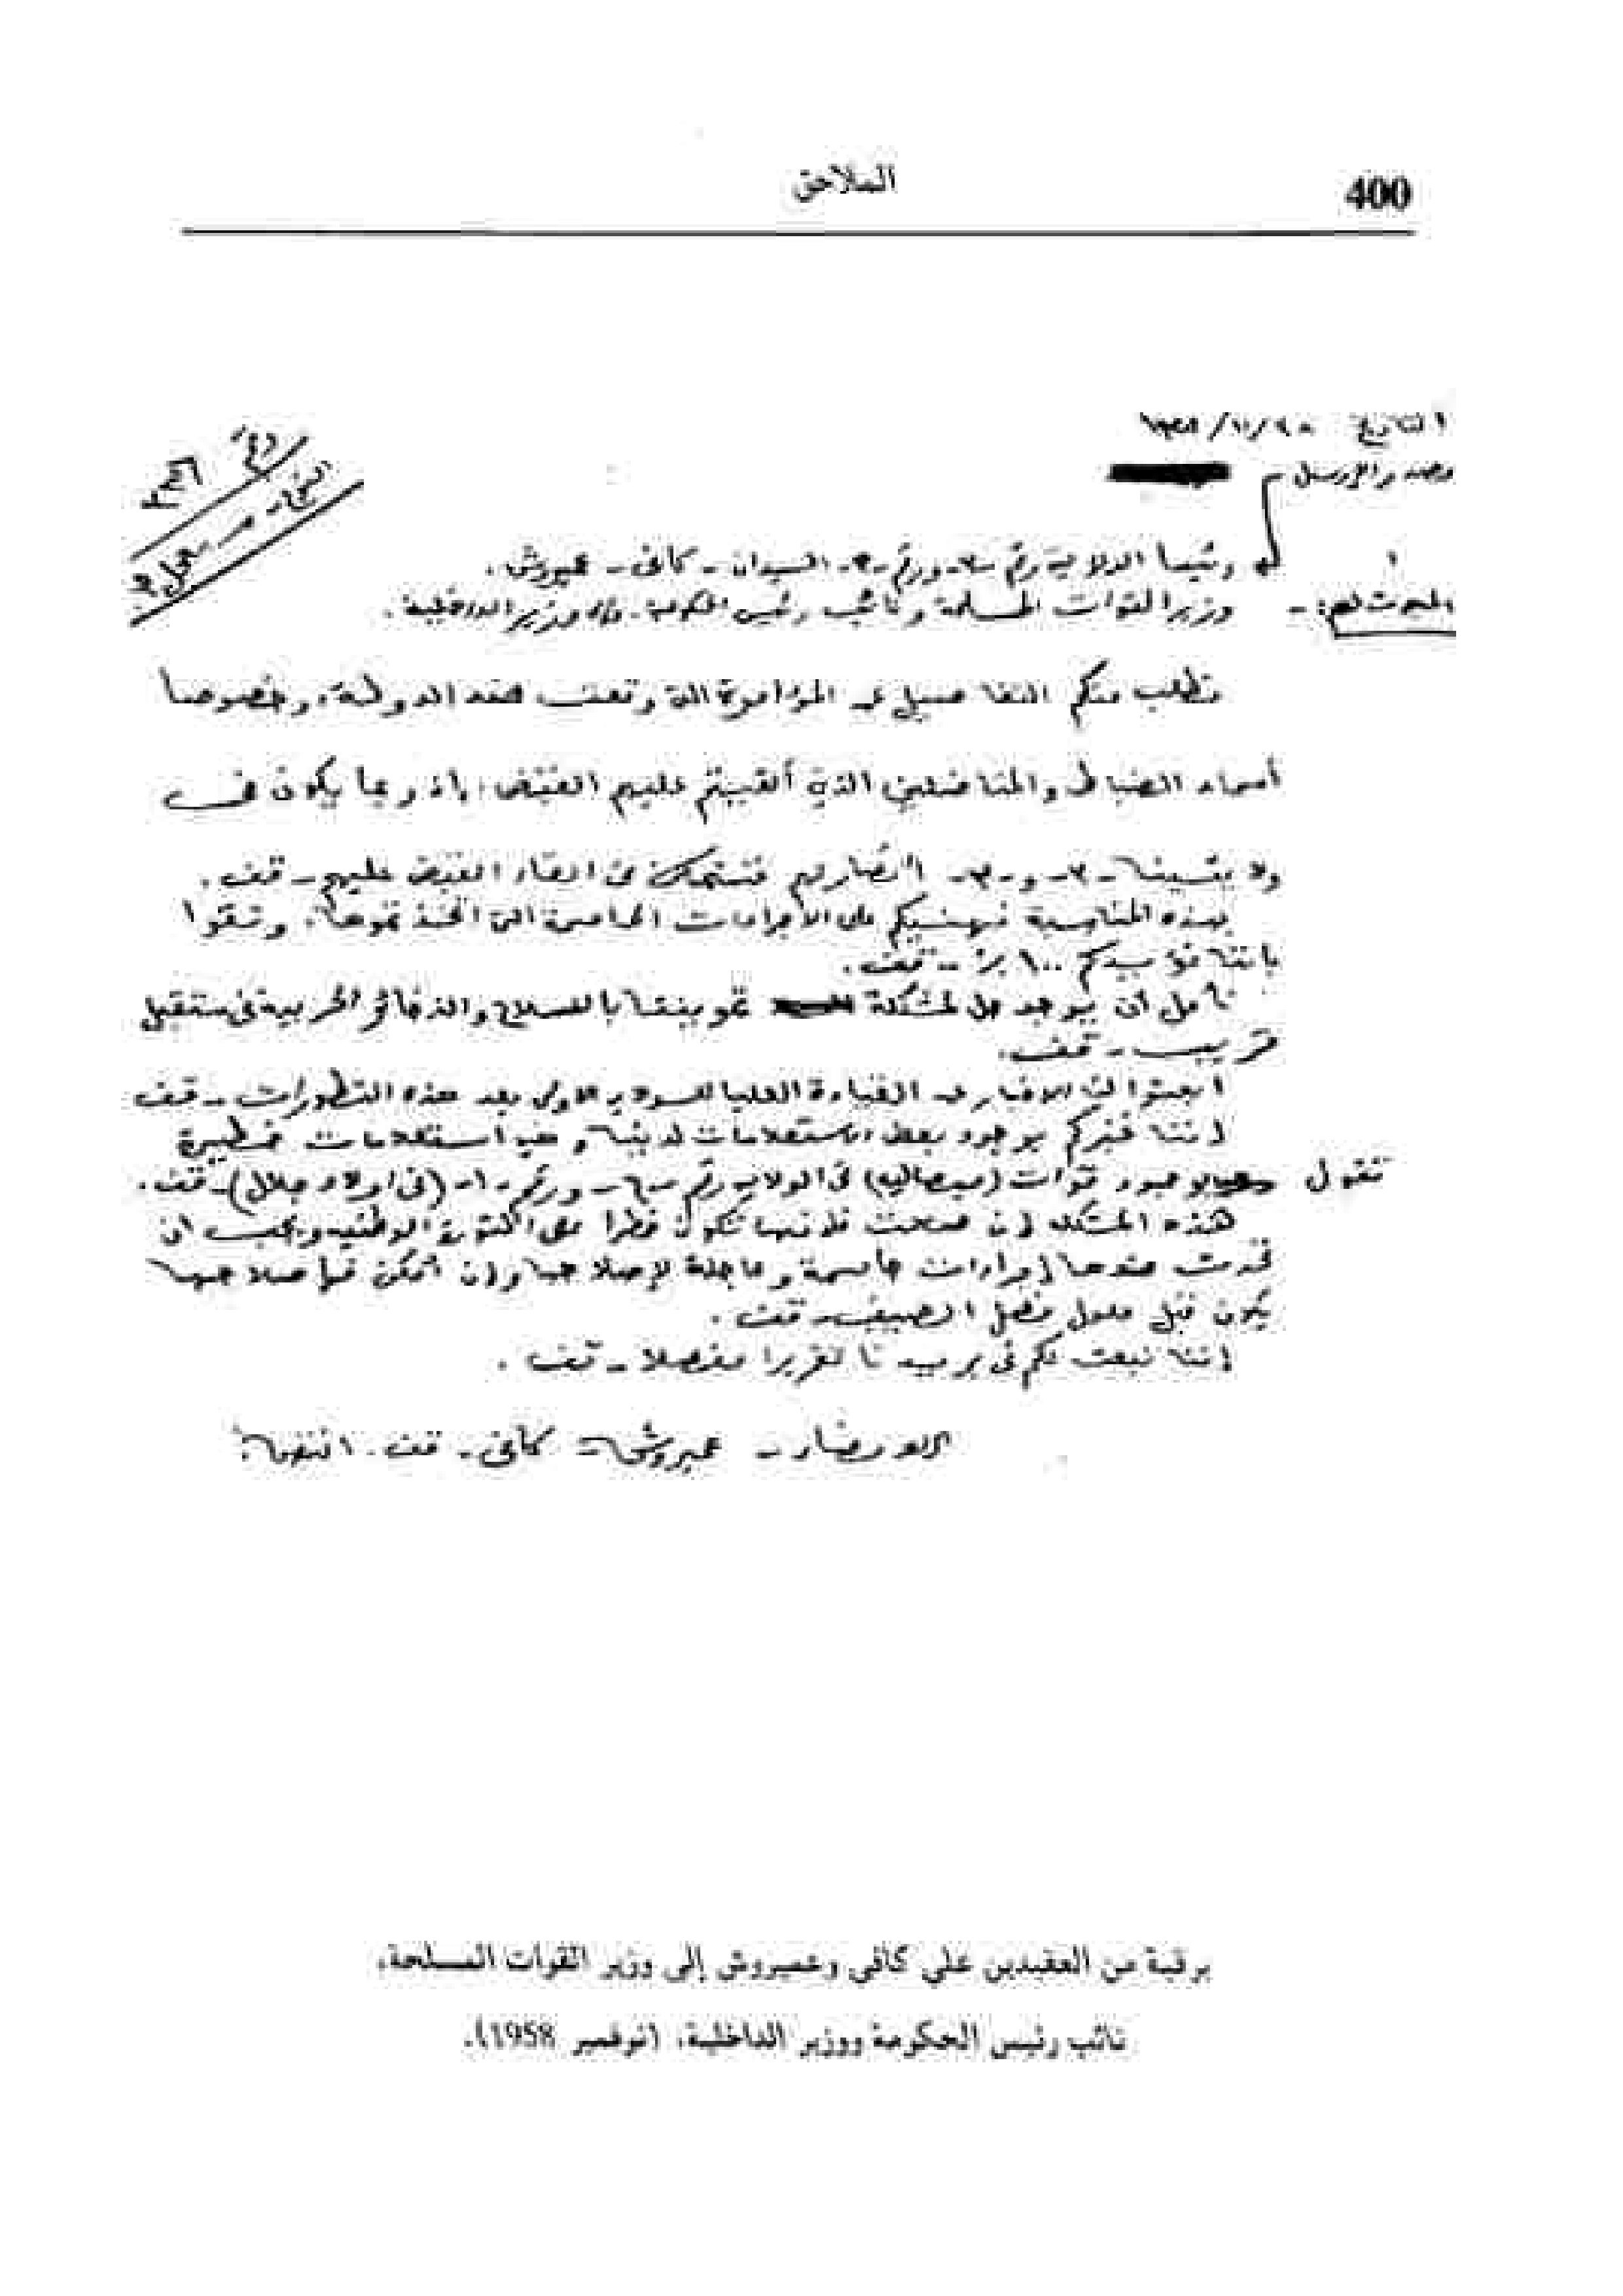 400
الملاحق
التاريخ ١٩٥٨/١١/٢٨
رقم
رئيسا الولاية رقم -٢- ورقم -٣- السيدان - كافى - عميروش .
المبعوث لهم: - وزير القوات المسلحة ونائب رئيس الحكومة - وزير الداخلية .
نطلب منكم التفاصيل عن المؤامرة التى وقعت ضد الدولة، وخصوصا
أسماء الضباط والمناضلين الذين ألقيتم عليهم القبض، إذ ربما يكون فى
ولايتينا -٢- و -٣- أنصارهم فنتمكن من القاء القبض عليهم - قف .
بهذه المناسبة نهنيكم على الاجراءات الحاسمة التى اتخذتموها، وثقوا
بأننا نؤيدكم ١٠٠ ٪ - قف .
نأمل ان يوجد حل لمشكلة تموينينا بالسلاح والذخائر الحربية فى مستقبل
قريب - قف .
ابعثوا لنا الاخبار عن القيادة العليا للولاية الاولى بعد هذه التطورات - قف
إننا نخبركم بوجود بعض الاستعلامات لدينا وهى استعلامات خطيرة
تقول بوجود قوات (ميصاليه) فى الولاية رقم -٦- ورقم -١- (فى اولاد جلال) - قف .
هذه المشكلة إن صحت فإنها تكون خطرا على الثورة الوطنية ويجب ان
تحدث ضدها إجراءات حاسمة وعاجلة لإصلاحها وإن أمكن فإصلاحها
يكون قبل حلول فصل الصيف - قف .
إننا نبعث لكم فى بريدنا تقريرا مفصلا - قف .
الامضاء - عميروش - كافى - قف - انتهى
برقية من العقيدين علي كافي وعميروش إلى وزير القوات المسلحة،
نائب رئيس الحكومة ووزير الداخلية، (نوفمبر 1958).